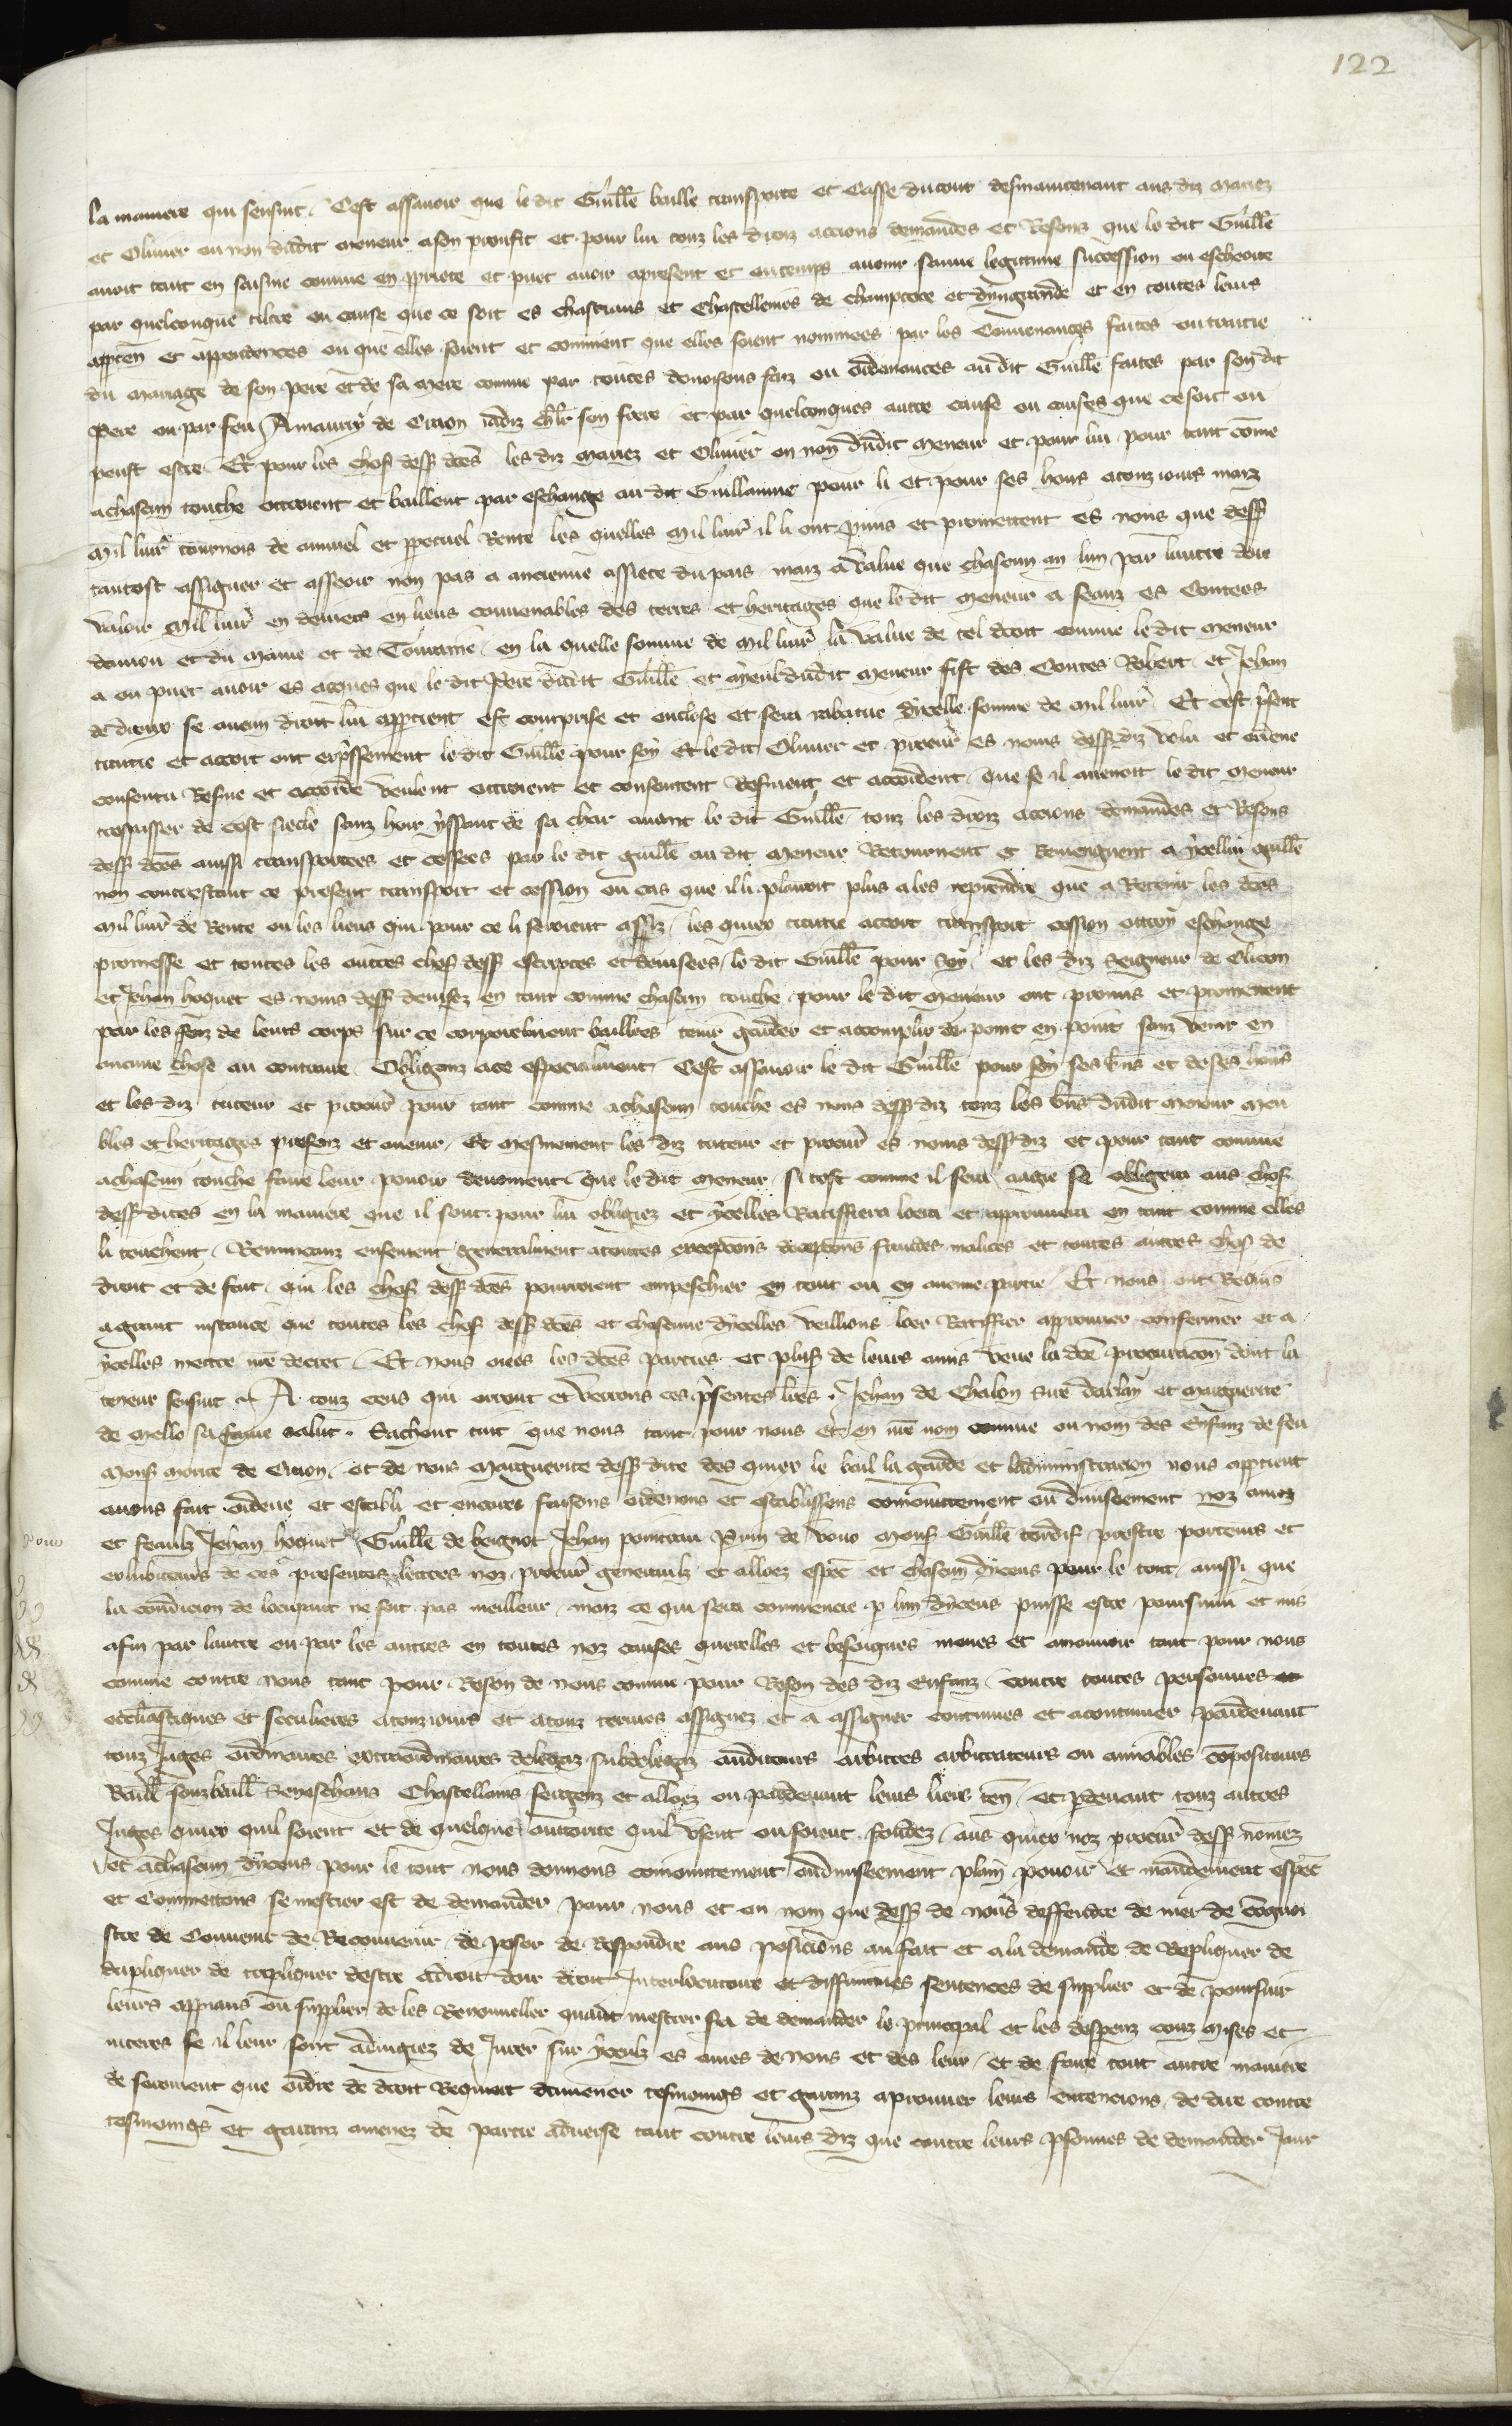 122
la maniere qui sensuit. Cest assavoir que le dit Guille baille transporte et Cesse du tout desmaintenant aus diz mariez
et Olivier ou non dudit meneur a son proufit et pour lui touz les droiz accions demandes et Resons que le dit Guille
avoit tant en saisine comme en propriete et puet avoir apresent et ou temps avenir par une legitime succession ou escheoite
par quelconque tiltre ou cause que ce soit es chastiaus et Chastellenies de champtoce et dyngrande et en toutes leurs
apparten et appendences ou que elles soient et comment que elles soient nommees par les Convenances faites ou traitie
du mariage de son pere et de sa mere comme par toutes donoisons faiz ou ordenances au dit Guille faites par son dit
Pere ou par feu Amaury de Craon iadiz chlr son frere et par quelconques autre cause ou causes que ce soit ou
peust estre. Et pour les choses dess dces les diz mariez et Olivier ou non dudit Meneur et pour lui pour tant come
a chascun touche ottroient et baillent par eschange au dit Guillaume pour li et pour ses hoirs a touz iours maiz
Mil livr tournois de annuel et perpetuel Rente les quelles Mil livr il li ont promis et promettent es nons que dess
tantost assigner et asseoir non pas a ancienne assiete du pais maiz a value que chascun an lun par lautre doie
valoir Mil livr en deniers en lieus convenables des terres et heritages que le dit Meneur a seanz es Contees
danjou et du Maine et de Touraine. en la quelle somme de Mil livr la value de tel droit comme le dit Meneur
a ou puet avoir es acques que le dit Pere dudit Guille et ayeul dudit meneur fist des Contes Robert et Jehan
de dreux se aucun droit lui appartient est comprise et enclose et sera rabatue dicelle somme de mil livr. Et cest present
traitie et accort ont expressement le dit Guille pour soy Et le dit Olivier et procur es nons dess diz volu et ordene
consentu Resine et accorde veulent ottroient et consentent Resinent et accordent. Que se il avenoit le dit meneur
trespasser de cest siecle sanz hoir yssant de sa char avant le dit Guille. touz les droiz accions demandes et Resons
dess dces aussi transportees et cessees par le dit guille au dit meneur Retournent et Reviengnent a ycellui guille
non contrestant ce present transport et cession ou cas que il li plairoit plus a les reprendre que a Retenir les dces
Mil livr de Rente ou les lieus qui pour ce li seroient assiz. les quiex traitie accort transport cession ottroy eschange
promesse et toutes les autres choses dess escriptes et devisees. le dit Guille pour soy. et les diz Seigneur de Clicon
et Jehan hoquet es nons dess devisez en tant comme chascun touche pour le dit meneur ont promis et promettent
par les foiz de leurs corps sur ce corporelment baillees tenir garder et accomplir de point en point sanz venir en
aucune chose au contraire. Obliganz a ce especialment. Cest assavoir le dit Guille pour soy ses biens et de ses hoirs
et les diz tuteur et procur pour tant comme a chascun touche es nons dess diz touz les biens dudit meneur meu
bles et heritages presenz et avenir. Et mesmement les diz tuteur et procur es nons dess diz et pour tant comme
a chascun touche faire leur povoir deuement. Que le dit meneur. si tost comme il sera aagie se obligera aus choses
dess dites en la maniere que il sont pour lui obligiez et ycelles Ratiffiera loera et approuvera en tant comme elles
li touchent. Renuncanz ensement generalment a toutes exceptions deceptions fraudes malices et toutes autres choses de
droit et de fait. qui les choses dess dces pourroient empeschier en tout ou en aucune partie. Et nous ont Requis
a grant instance que toutes les choses dess dces et chascune dycelles veillions loer Ratiffier approuver confermer et a
ycelles mettre nre decret. Et nous oies les dces parties et plus de leurs amis veue la dce procuracion dont la
teneur sensuit. A touz ceus qui orront et verrons ces presentes lres. Jehan de Chalon sire darlay et Marguerite
de Mello sa fame salut. Sachent tuit que nous tant pour nous et en nre nom comme ou nom des Enfanz de feu
Mons morice de Craon. et de nous Marguerite dess dite des quiex le bail la garde et ladministracion nous appartient
avons fait ordene et establi et encores faisons ordenons et establissons conioinctement ou diviseement noz amez
et feaulz Jehan hoquet Guille de bergnot Jehan poinceau Perrin de vouo Mons Guille tardif prestre porteurs et
exhibiteurs de ces presentes lettres noz procur generaulz et alloez espec et chascun dyceus pour le tout. aussi que
la condicion de loccupant ne soit pas meilleur. maiz ce qui sera commencie par lun dyceus puisse estre poursuiui et mis
a fin par lautre ou par les autres en toutes noz causes querelles et besoignes meues et amouvoir tant pour nous
comme contre nous tant pour Reson de nous comme pour Reson des diz Enfanz. contre toutes personnes
ecclesiastiques et seculieres a touz iours et a touz termes assignez et a assigner continues et a continuer pardevant
touz Juges ordinaires extraordinaires delegaz subdelegaz auditeurs arbitres arbitrateurs ou amiables compositeurs
Baill souzbaill Seneschaus Chastellains sergenz et alloez ou pardevant leurs lieus ten. et pardevant touz autres
Juges quiex quil soient et de quelque auttorite quil usent ou soient fondez. aus quiex noz procur dess nomez
et a chascun dyceus pour le tout nous donnons conioinctement ou diviseement plain povoir et mandement espec
et Commettons se mestier est de demander pour nous et ou nom que dess de nous deffendre de nier de cognoi
stre de Convenir de Reconvenir de poser de Respondre aus posicions au fait et a la demande de Repliquer de
dupliquer de tripliquer destre a droit doir droit Interlocutoire et diffinitives sentences de supplier et de poursuir
leurs appiaus ou supplier de les Renouveller quant mestier sera de demander le principal et les despens couz mises et
interes se il leur sont adiugiez de Jurer sur yceulz es ames de nous et des leur et de faire tout autre maniere
de serement que ordre de droit Requiert damener tesmoings et garanz a prouver leurs entencions de dire contre
tesmoings et garanz amenez de partie adverse tant contre leurs diz que contre leurs personnes de demander Jour